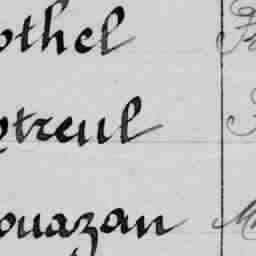 othel
treul
ouazan